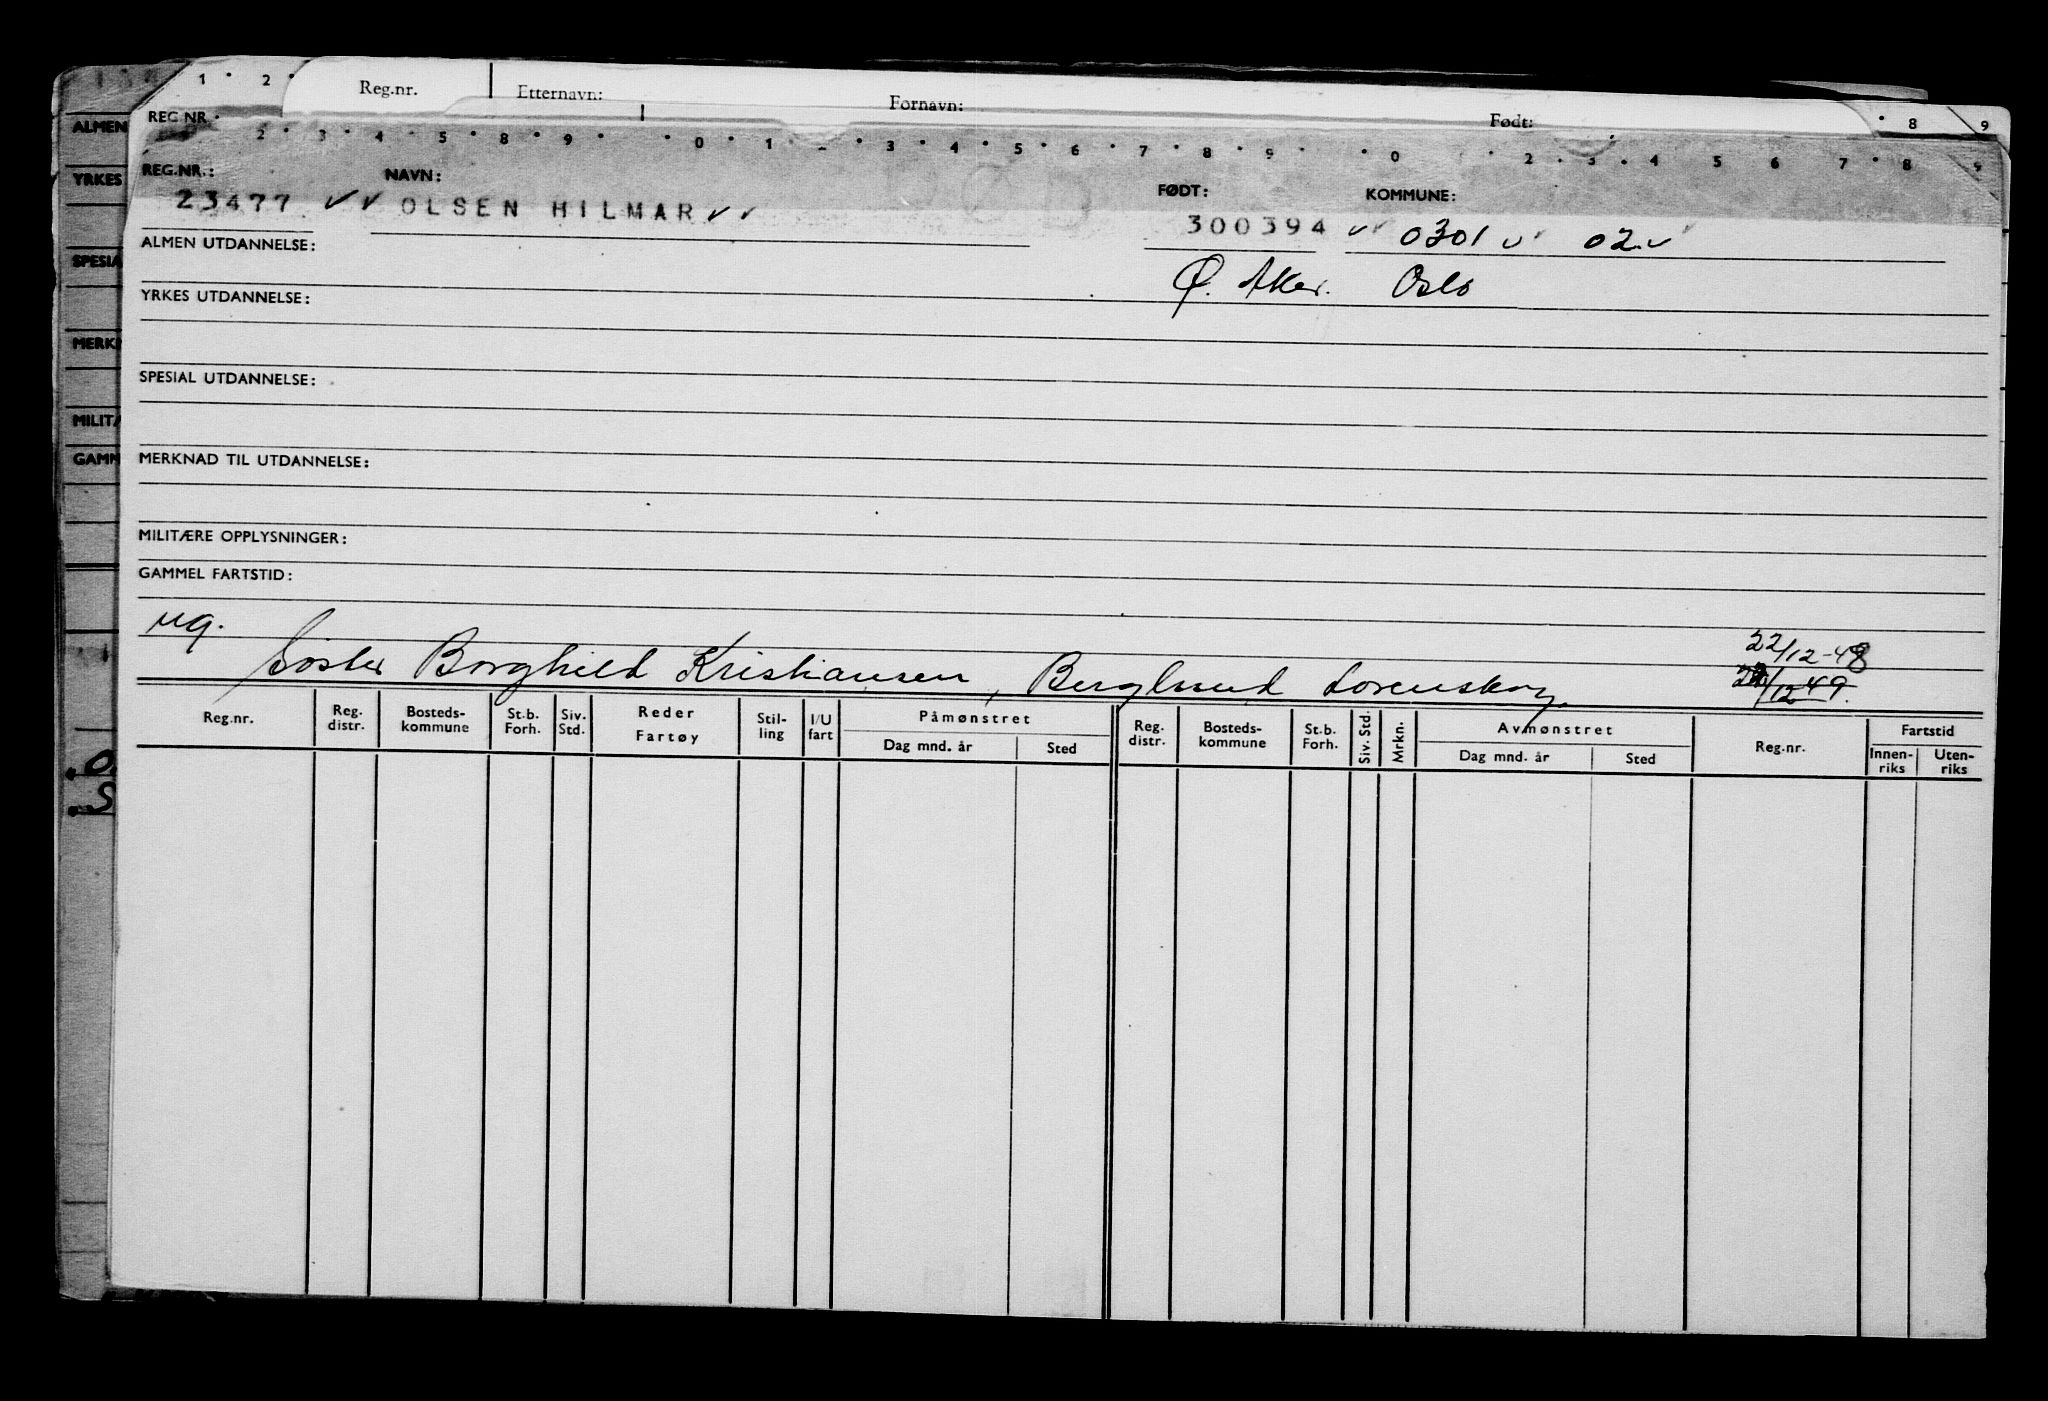 1 • 2 •
Reg.nr. Etternavn: Fornavn: Født:
• 8 9
REG NR.
2 • 3 • 4 • 5 • 8 • 9 • 0 • 1 • 3 • 4 • 5 • 6 • 7 • 8 • 9 • 0 • 2 • 3 • 4 5 6 7 • 8 9
REG.NR.: NAVN: FØDT: KOMMUNE:
23477 ✓ ✓ OLSEN HILMAR ✓ ✓ 300394 ✓ ✓ 0301 ✓ 02. ✓
ALMEN UTDANNELSE:
Ø. Aker. Oslo
YRKES UTDANNELSE:
SPESIAL UTDANNELSE:
MERKNAD TIL UTDANNELSE:
MILITÆRE OPPLYSNINGER:
GAMMEL FARTSTID:
ug.
22/12-48
Søster Borghild Kristiansen, Berglund Lørenskog.
22/12 49.
Reg.nr. Reg. distr. Bosteds-kommune St.b. Forh. Siv. Std. Reder Fartøy Stil-ling I/U fart Påmønstret Dag mnd. år Sted Reg. distr. Bosteds-kommune St.b. Forh. Siv. Std. Mrkn. Avmønstret Dag mnd. år Sted Reg.nr. Fartstid Innen-riks Uten-riks
ALMEN
YRKES
SPESIA
MERKN
MILITÆ
GAMM